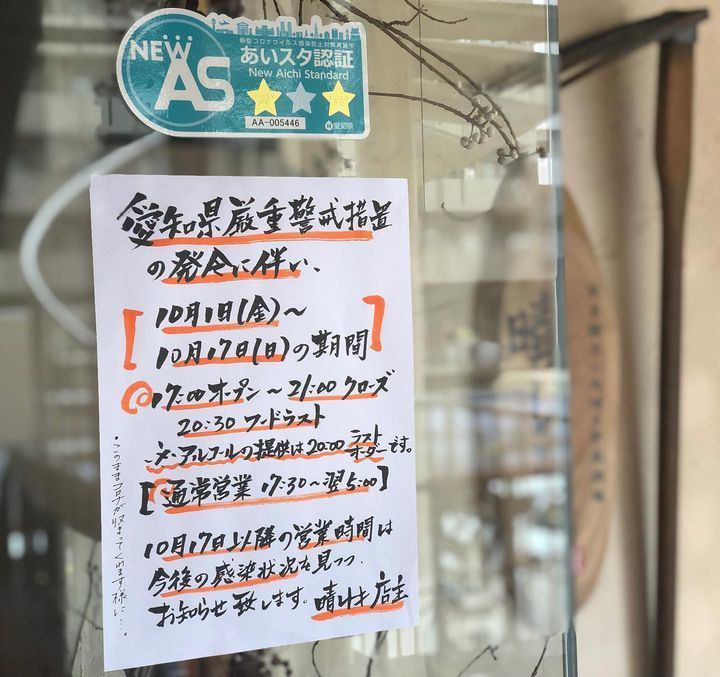 NEW
AS
新型コロナウイルス感染防止対策実施中
あいスタ認証
New Aichi Standard
AA-005446
愛知県
愛知県厳重警戒措置
の発令に伴い、
[10月1日(金)~
10月17日(日)の期間]
@17:00オープン~21:00クローズ
20:30フードラスト
※アルコールの提供は20:00ラストオーダーです。
[通常営業 17:30~翌5:00]
10月17日以降の営業時間は
今後の感染状況を見つつ、
お知らせ致します。 店主
・このままコロナが収まってくれます様に…。